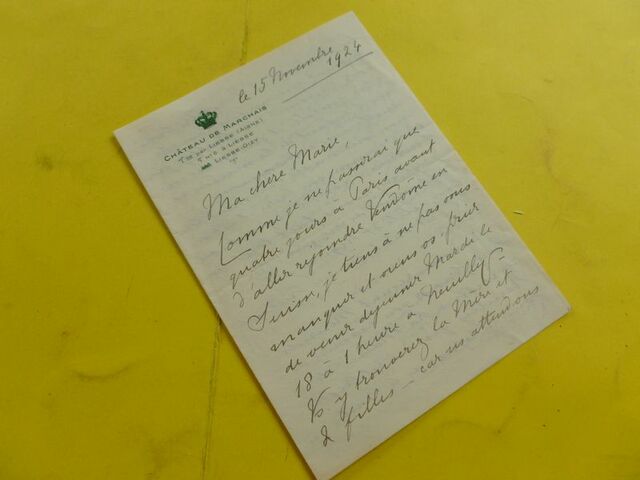 le 15 Novembre
1924
CHÂTEAU DE MARCHAIS
Tss par LIESSE (AISNE)
LIESSE
LIESSE-GIZY
Ma chère Marie,
Comme je ne passerai que
quatre jours à Paris avant
d'aller rejoindre Vendôme en
Suisse, je tiens à ne pas vous
manquer et viens vs prier
de venir déjeuner Mardi le
18 à 1 heure à Neuilly -
Vs y trouverez la Mère et
2 filles - car ns attendons